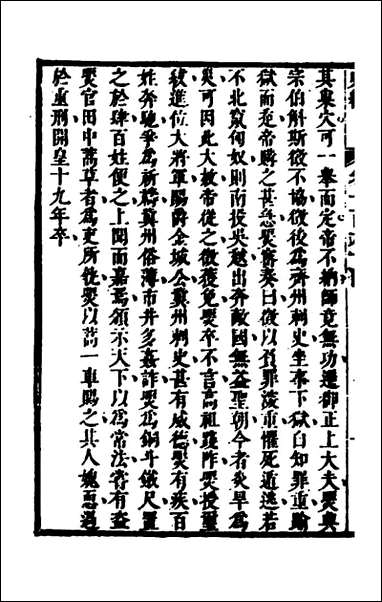 其巢穴可一舉而定帝不納師竟無功遷御正上大夫煚與
宗伯斛斯徵不協徵後為齊州刺史坐事下獄自知罪重踰
獄而逃帝購之甚急煚密奏曰徵以負罪深重懼死遁逃若
不北竄匈奴則南投吳越出奔敵國無益聖朝今者炎旱為
災可因此大赦帝從之徵獲免煚卒不言高祖踐阼煚授璽
紱進位大將軍賜爵金城公冀州刺史甚有威德煚有疾百
姓奔馳爭為祈禱冀州俗薄市井多姦詐煚為銅斗鐵尺置
之於肆百姓便之上聞而嘉焉頒示天下以為常法嘗有盜
煚官田中蒿草者為吏所執煚以蒿一車賜之其人媿恧過
於重刑開皇十九年卒